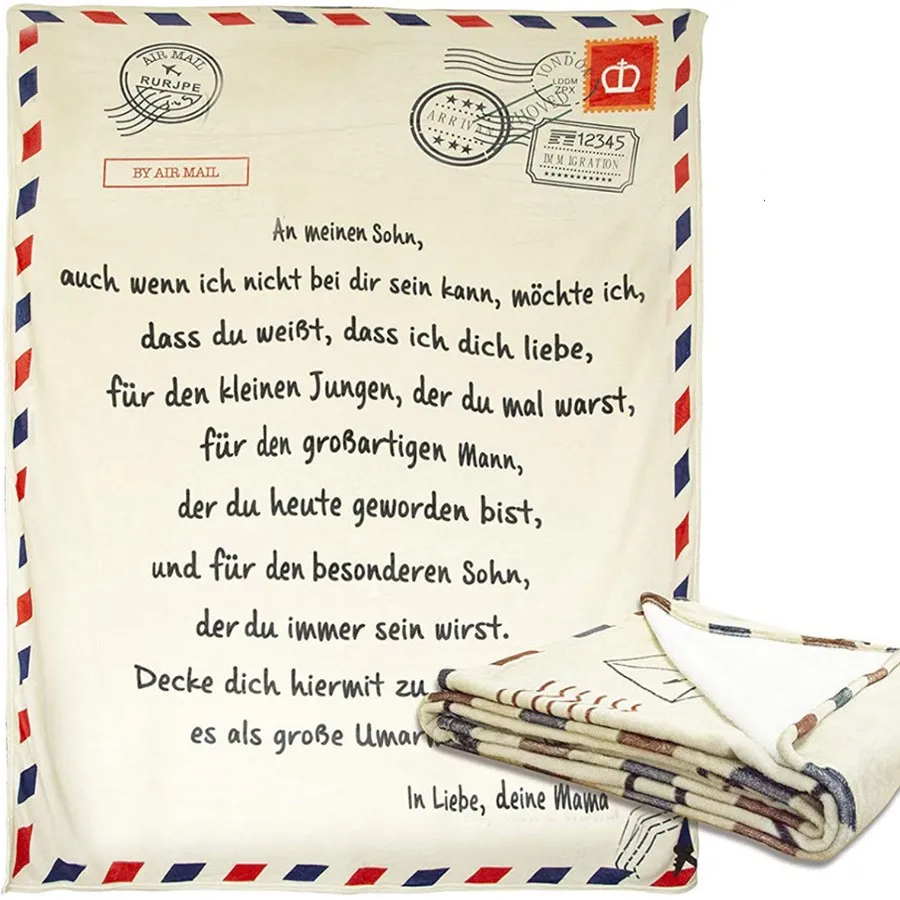 AIR MAIL
RURJPE
LONDON
LDDM
ZPX
ARRIVAL
12345
IMMIGRATION
BY AIR MAIL
An meinen Sohn,
auch wenn ich nicht bei dir sein kann, möchte ich,
dass du weißt, dass ich dich liebe,
für den kleinen Jungen, der du mal warst,
für den großartigen Mann,
der du heute geworden bist,
und für den besonderen Sohn,
der du immer sein wirst.
Decke dich hiermit zu
es als große
In Liebe, deine Mama